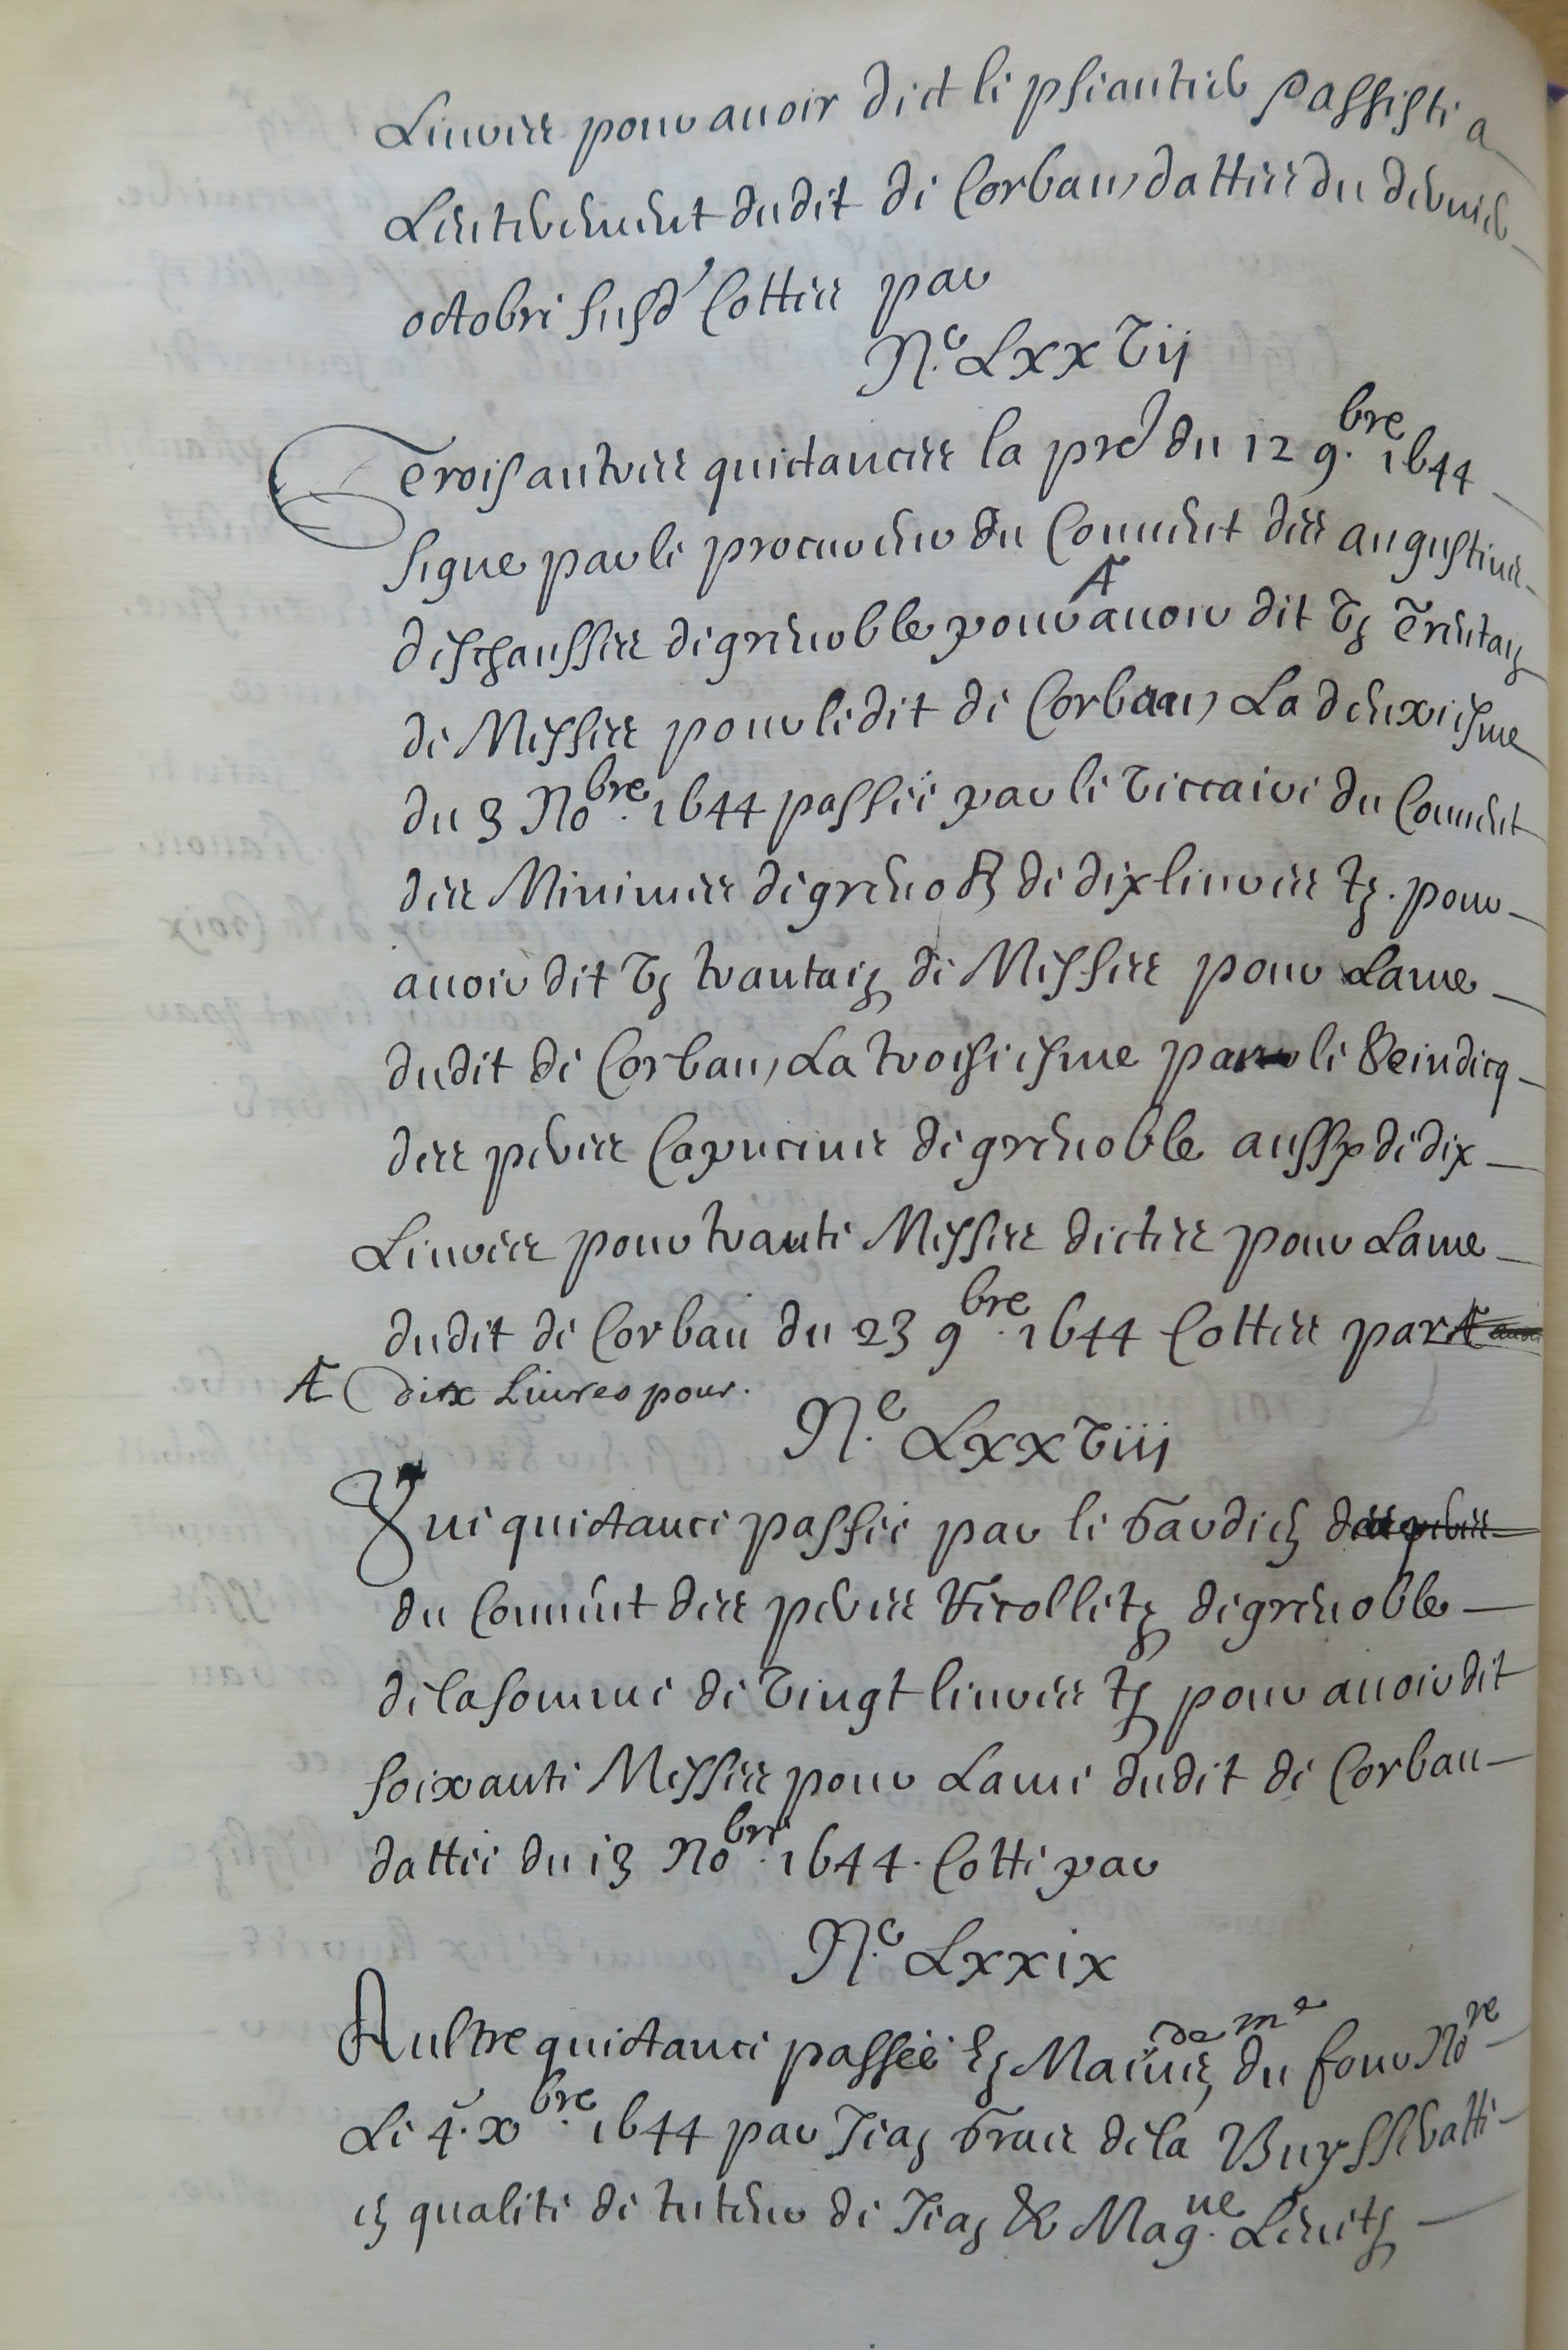 Livres pour avoir dict le pseautier & assisté a
L'enterrement dudit de Corbeau, dattée du dernier
octobre susd' Cottée par
N.e Lxxvij
Trois autres quictances la pre du 12 9.bre 1644
signe par le procureur du Couvent des augustins
deschaussés de grenoble pour A avoir dit ung Trentain
de Messes pour ledit de Corbeau, La deuxiesme
du 3 No.bre 1644 passée par le viccaire du Couvent
des Minimes de grenoble de dix livres tz. pour
avoir dit ung trantain de Messes pour Lame
dudit de Corbeau, La troisiesme par le Scindicq
des peres Capucins de grenoble aussy de dix
Livres pour trante Messes dictes pour Lame
dudit de Corbeau du 23 9.bre 1644 Cottées par
A dix Livres pour.
N.e Lxxviij
Une quictance passée par le gardien
du Couvent des peres Recolletz de grenoble
de la somme de vingt livres tz pour avoir dit
soixante Messes pour Lame dudit de Corbeau
dattée du 13 No.bre 1644. Cotté par
N.e Lxxix
Aultre quictance passée es Mains de me du four No.re
Le 4.e x.bre 1644 par Jean de la Buysseratte
en qualité de tuteur de Jean & Mag.ne